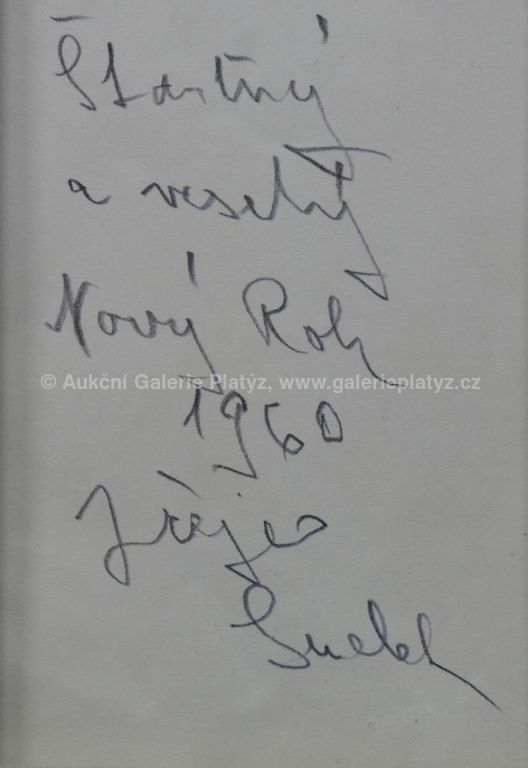 Šťastný
a veselý
Nový Rok
© Aukční Galerie Platýz, www.galerieplatyz.cz
1960
přeje